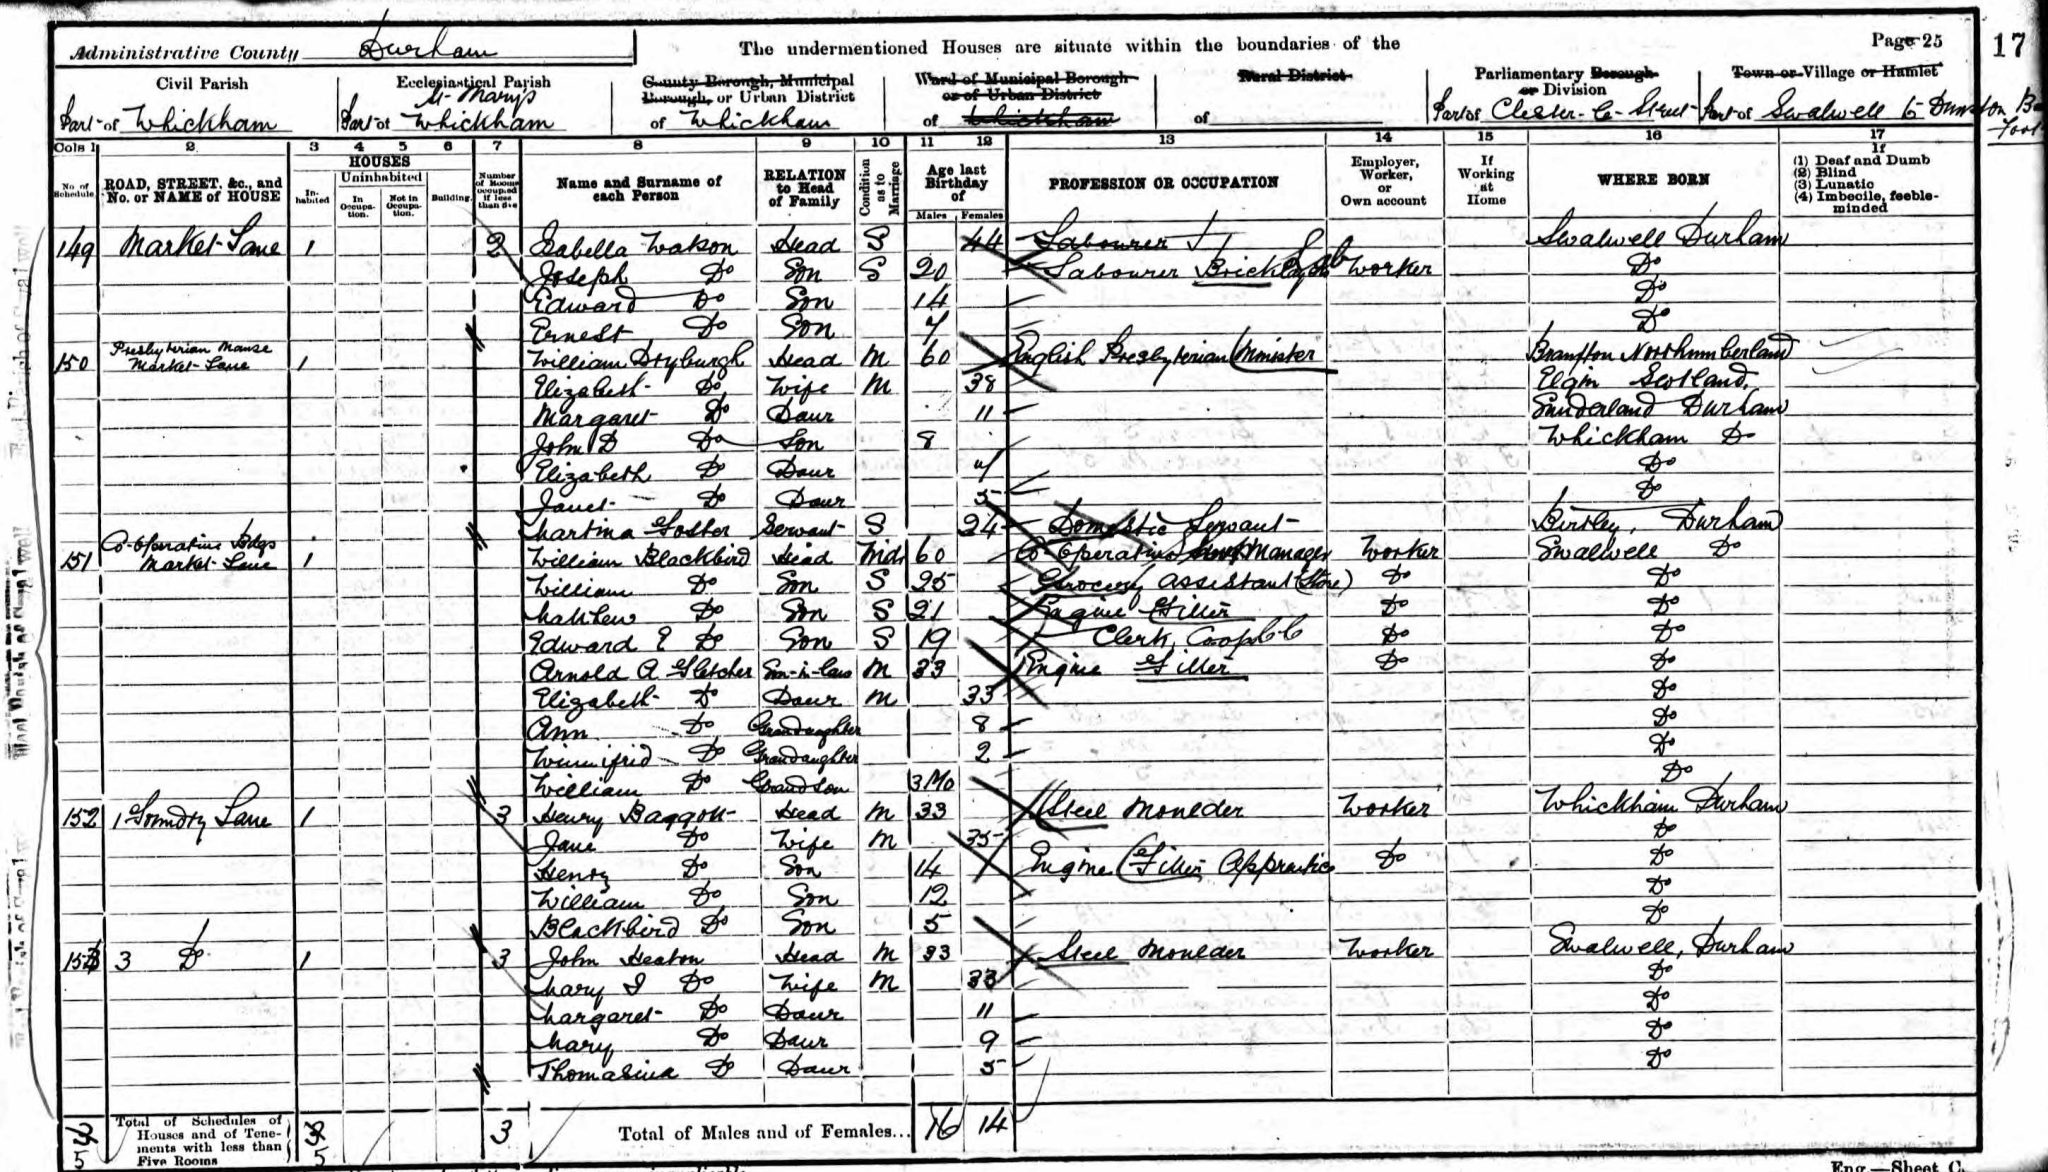 Administrative County Durham
The undermentioned Houses are situate within the boundaries of the
Page 25
17
Civil Parish
Ecclesiastical Parish
County Borough, Municipal Borough, or Urban District
Ward of Municipal Borough or of Urban District
Rural District
Parliamentary Borough or Division
Town or Village or Hamlet
Part of Whickham
Part of St Marys Whickham
of Whickham
of Whickham
of
Part of Chester-le-Street
Part of Swalwell to Dunston
Cols 1 2 3 4 5 6 7 8 9 10 11 12 13 14 15 16 17
No. of Schedule
ROAD, STREET, &c., and No. or NAME of HOUSE
HOUSES
In-habited
Uninhabited
In Occupa-tion.
Not in Occupa-tion.
Building.
Number of Rooms occupied if less than five
Name and Surname of each Person
RELATION to Head of Family
Condition as to Marriage
Age last Birthday of
Males Females
PROFESSION OR OCCUPATION
Employer, Worker, or Own account
If Working at Home
WHERE BORN
If
(1) Deaf and Dumb
(2) Blind
(3) Lunatic
(4) Imbecile, feeble-minded
149 Market Lane 1 2 Isabella Watson Head S 44 Labourer Swalwell Durham
Joseph Do Son S 20 Labourer Bricklayers Worker Do
Edward Do Son 14 Do
Ernest Do Son 7 Do
150 Presbyterian Manse Market Lane 1 William Dryburgh Head M 60 English Presbyterian Minister Northumberland
Elizabeth Do Wife M 38 Elgin Scotland
Margaret Do Daur 11 Sunderland Durham
John D Do Son 8 Whickham Do
Elizabeth Do Daur 7 Do
Janet Do Daur 5 Do
Martina Foster Servant S 24 Domestic Servant Birtley, Durham
151 Co-operative Bdgs Market Lane 1 William Blackbird Head Wid 60 Co-operative Manager Worker Swalwell Do
William Do Son S 25 Grocery Assistant (Store) Do Do
Matthew Do Son S 21 Engine Fitter Do Do
Edward E Do Son S 19 Clerk, Coop Do Do
Arnold A Fletcher Son-in-law M 33 Engine Fitter Do Do
Elizabeth Do Daur M 33 Do
Ann Do Grandaughter 8 Do
Winnifrid Do Grandaughter 2 Do
William Do Grandson 3 Mo Do
152 1 Foundry Lane 1 3 Henry Baggott Head M 33 Steel Moulder Worker Whickham Durham
Jane Do Wife M 35 Do
Henry Do Son 14 Engine Fitter Apprentice Do Do
William Do Son 12 Do
Blackbird Do Son 5 Do
153 3 Do 1 3 John Heaton Head M 33 Steel Moulder Worker Swalwell, Durham
Mary I Do Wife M 33 Do
Margaret Do Daur 11 Do
Mary Do Daur 9 Do
Thomasina Do Daur 5 Do
5 Total of Schedules of Houses and of Tene-ments with less than Five Rooms 5 3 Total of Males and of Females... 16 14
Eng.—Sheet C.